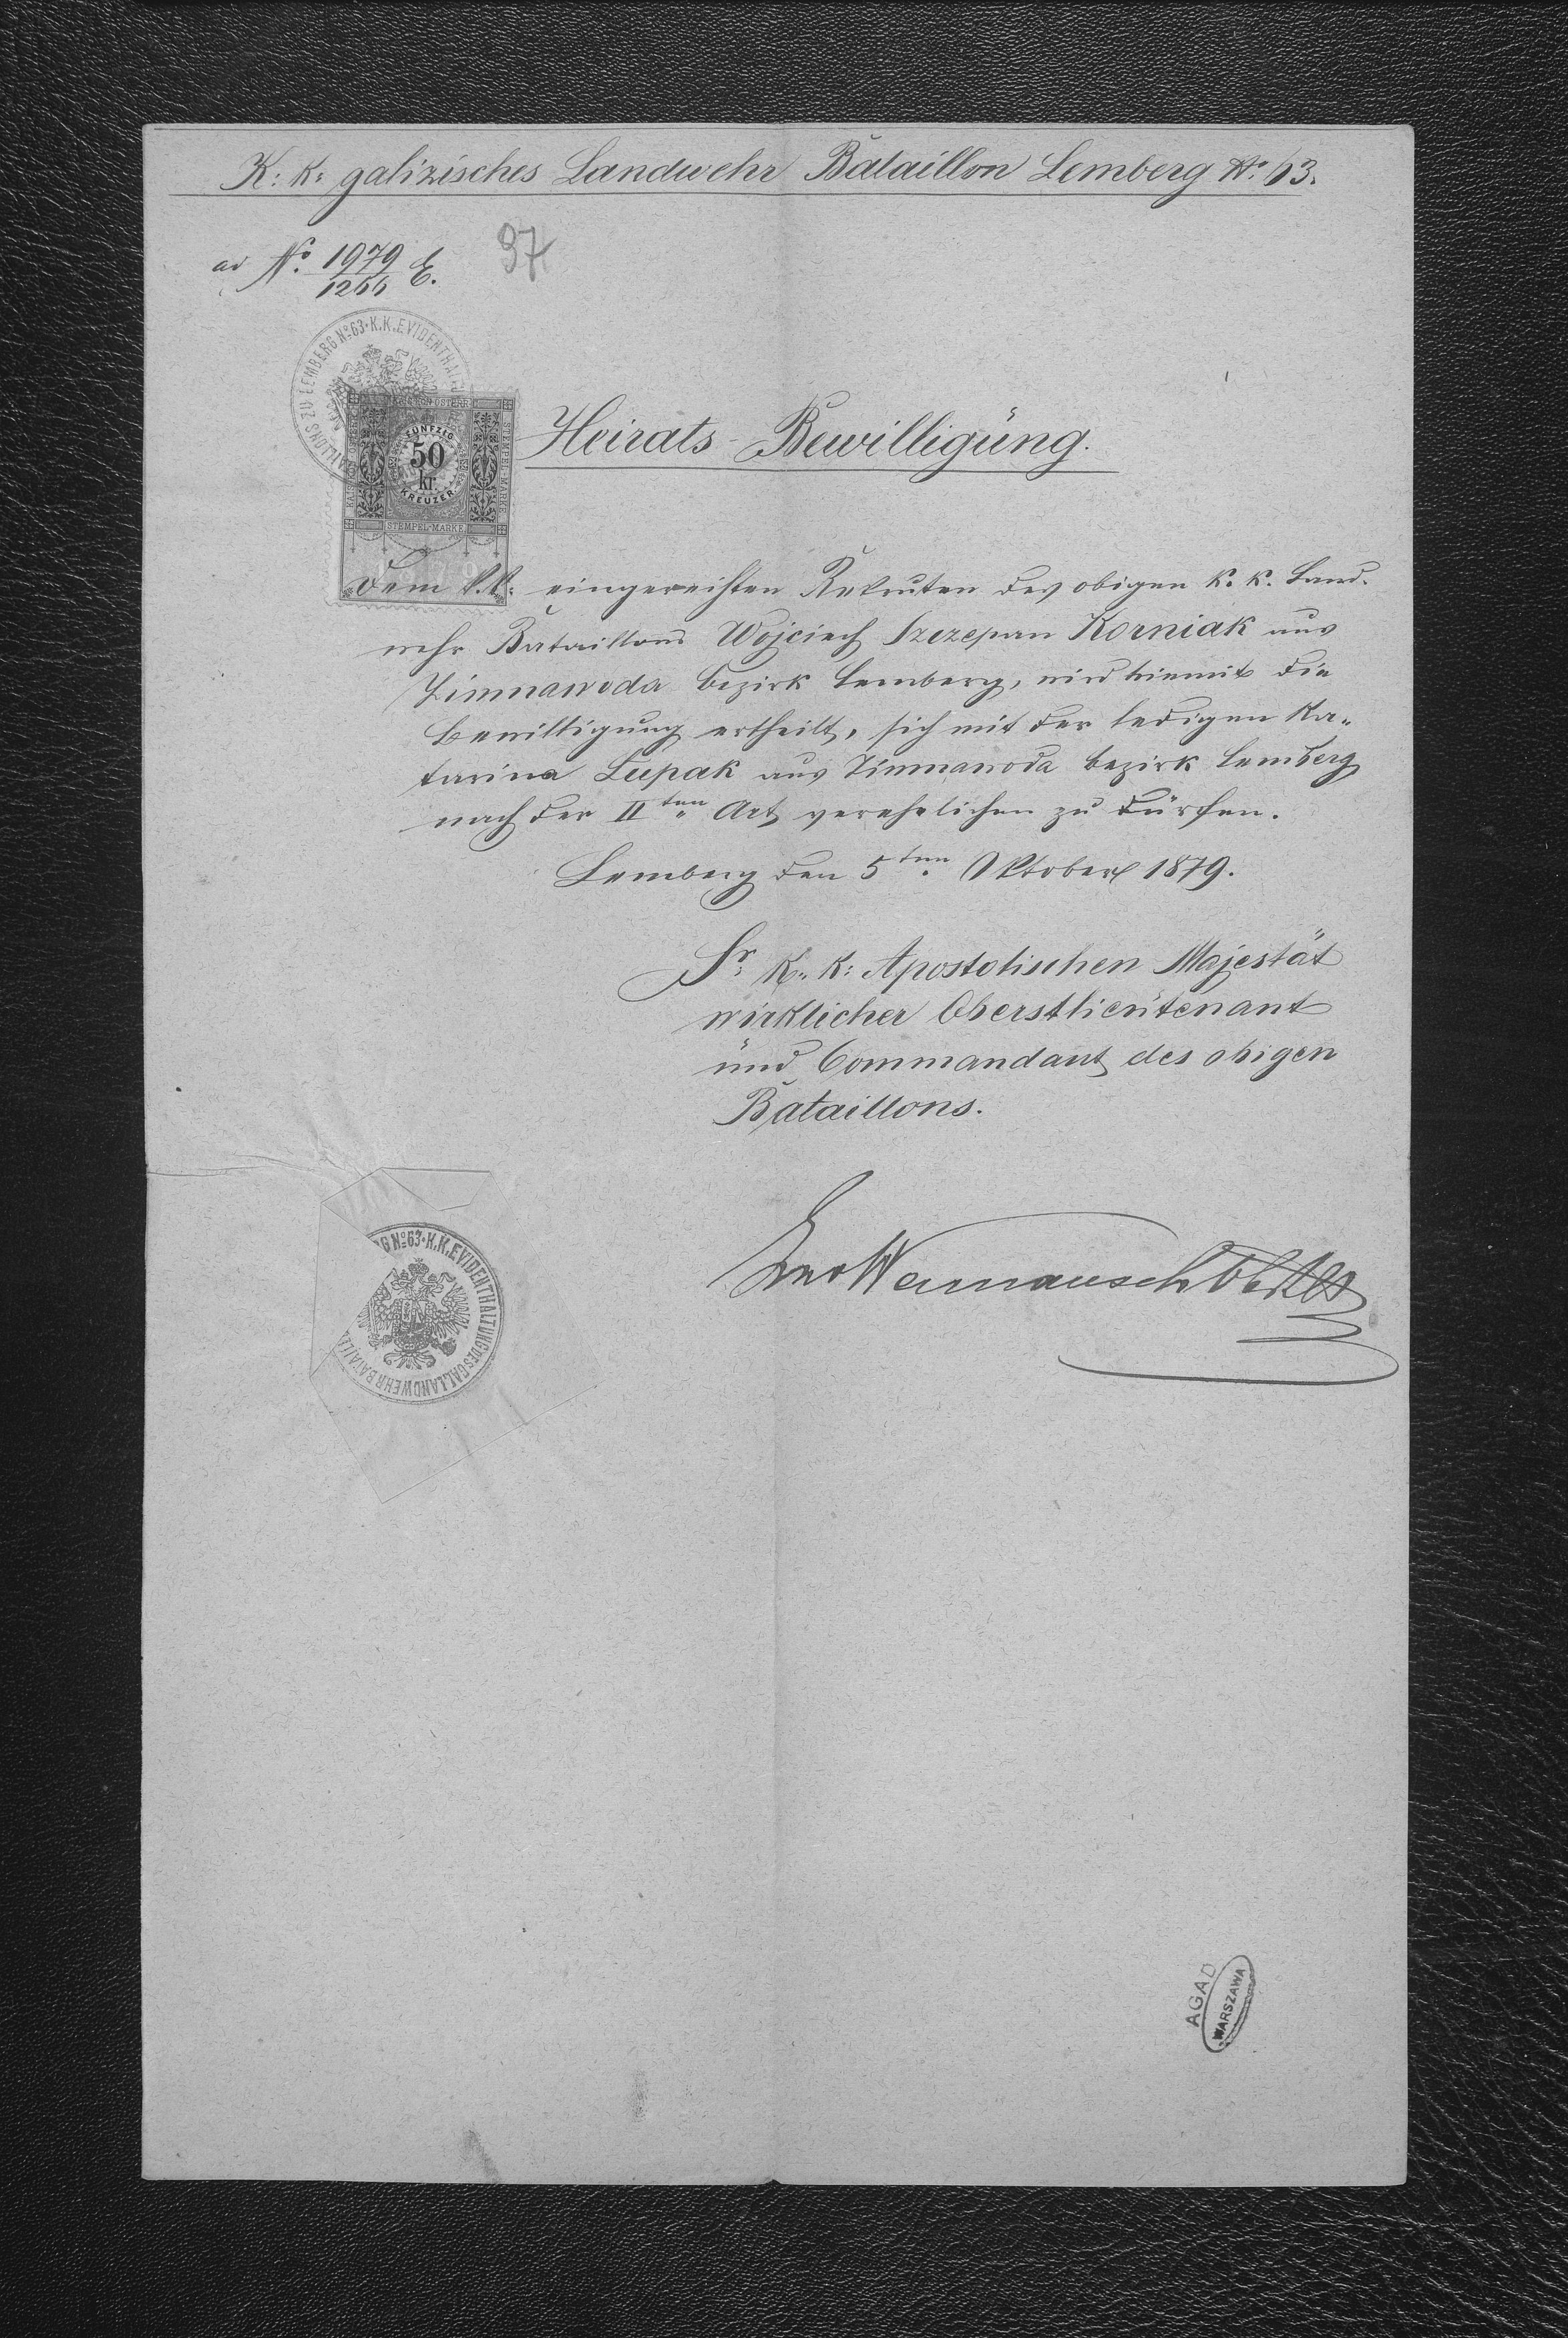 K: k: galizisches Landwehr Bataillon Lemberg No. 63.
ad No. 1979/1266 E.
97
BATAILLONS ZU LEMBERG No. 63 · K.K. EVIDENTHAL
STEMPEL-MARKE
FÜNFZIG
50
kr.
KREUZER
STEMPEL-MARKE
Heirats-Bewilligung.
Dem eingereihten Rekruten des obigen k. k. Land-
wehr Bataillons Wojciech Szczepan Korniak aus
Zimnawoda Bezirk Lemberg, wird hiemit die
Bewilligung ertheilt, sich mit der ledigen Ka-
tarina Łupak aus Zimnawoda Bezirk Lemberg
nach der II ten Art verehelichen zu dürfen.
Lemberg den 5ten Oktober 1879.
Sr. K. K: Apostolischen Majestät
wirklicher Oberstlieutenant
und Commandant des obigen
Bataillons.
G No. 63 · K.K. EVIDENTHALTUNG DES GAL. LANDWEHR BATAILL
AGAD
WARSZAWA